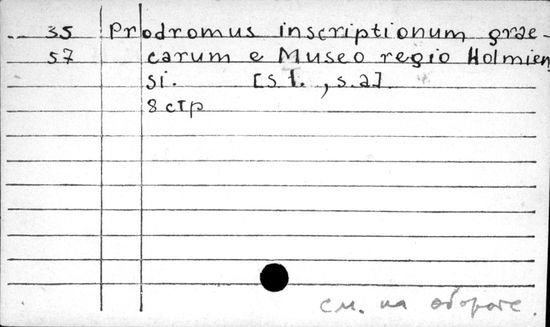 35 Prodromus inscriptionum grae-
57 carum e Museo regio Holmien
si. [s.l., s.a]
8 стр
см. на обороте.